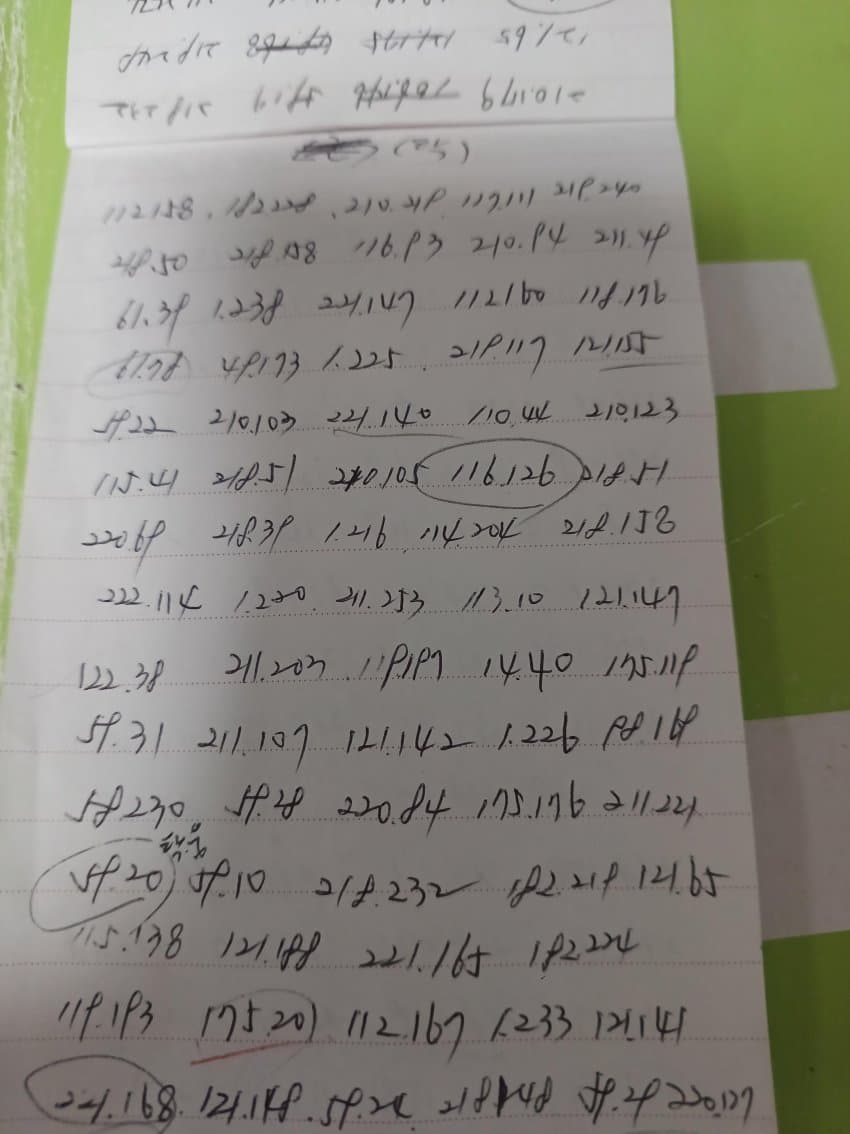 (25)
112.158. 182.228. 210.219. 117.111 219.240
218.50 218.158 116.93 210.94 211.49
61.39 1.238 221.147 112.160 118.176
61.78 49.173 1.225. 219.117 121.155
59.22 210.103 221.140 110.44 210.123
115.41 218.51 210.105 116.126 218.51
220.69 218.39 1.216 114.204 218.158
222.114 1.220. 211.253 113.10 121.147
122.38 211.203 119.197 14.40 175.119
59.31 211.107 121.142 1.226 98.169
58.230 59.28 220.84 175.176 211.221
59.20 59.10 218.232 182.219 121.65
115.138 121.188 221.165 182.224
119.193 175.201 112.167 1.233 121.141
221.168. 121.148. 218.148 59.29 220.127